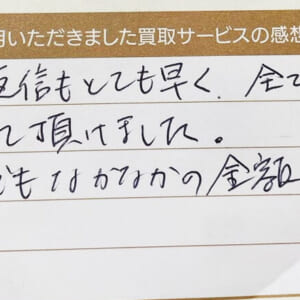 用いただきました買取サービスの感想
返信もとても早く、全て
て頂けました。
どもなかなかの金額